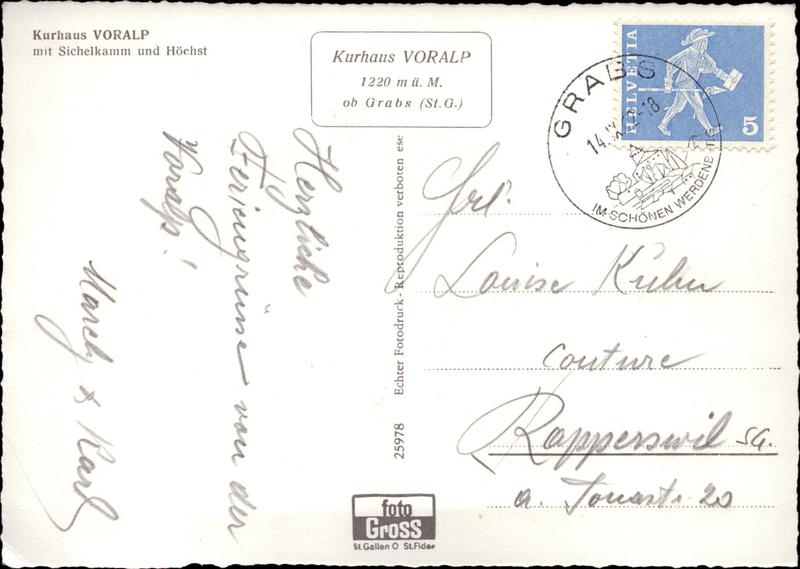 Kurhaus VORALP
mit Sichelkamm und Höchst
Kurhaus VORALP
1220 m ü. M.
ob Grabs (St.G.)
HELVETIA
5
GRABS
14.IX. -18
IM SCHÖNEN WERDENBERG
Herzliche
Feriengrüsse von der
Voralp!
Marcly & Karl
25978 Echter Fotodruck - Reproduktion verboten ese
Frl.
Louise Kuhn
Couture
Rapperswil SG.
a. 20
foto
Gross
St.Gallen O St.Fiden